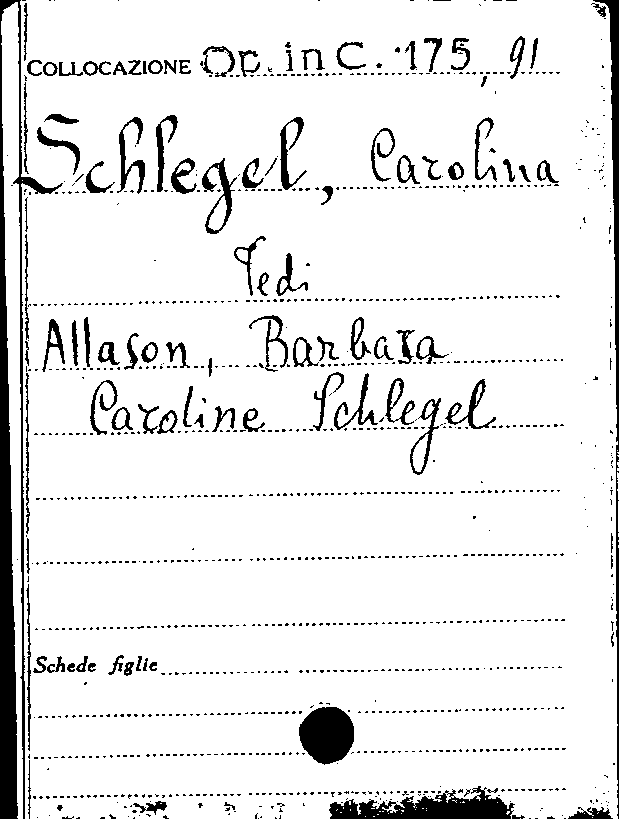 COLLOCAZIONE Op. in C. 175, 91
Schlegel, Carolina
Vedi
Allason, Barbara
Caroline Schlegel
Schede figlie